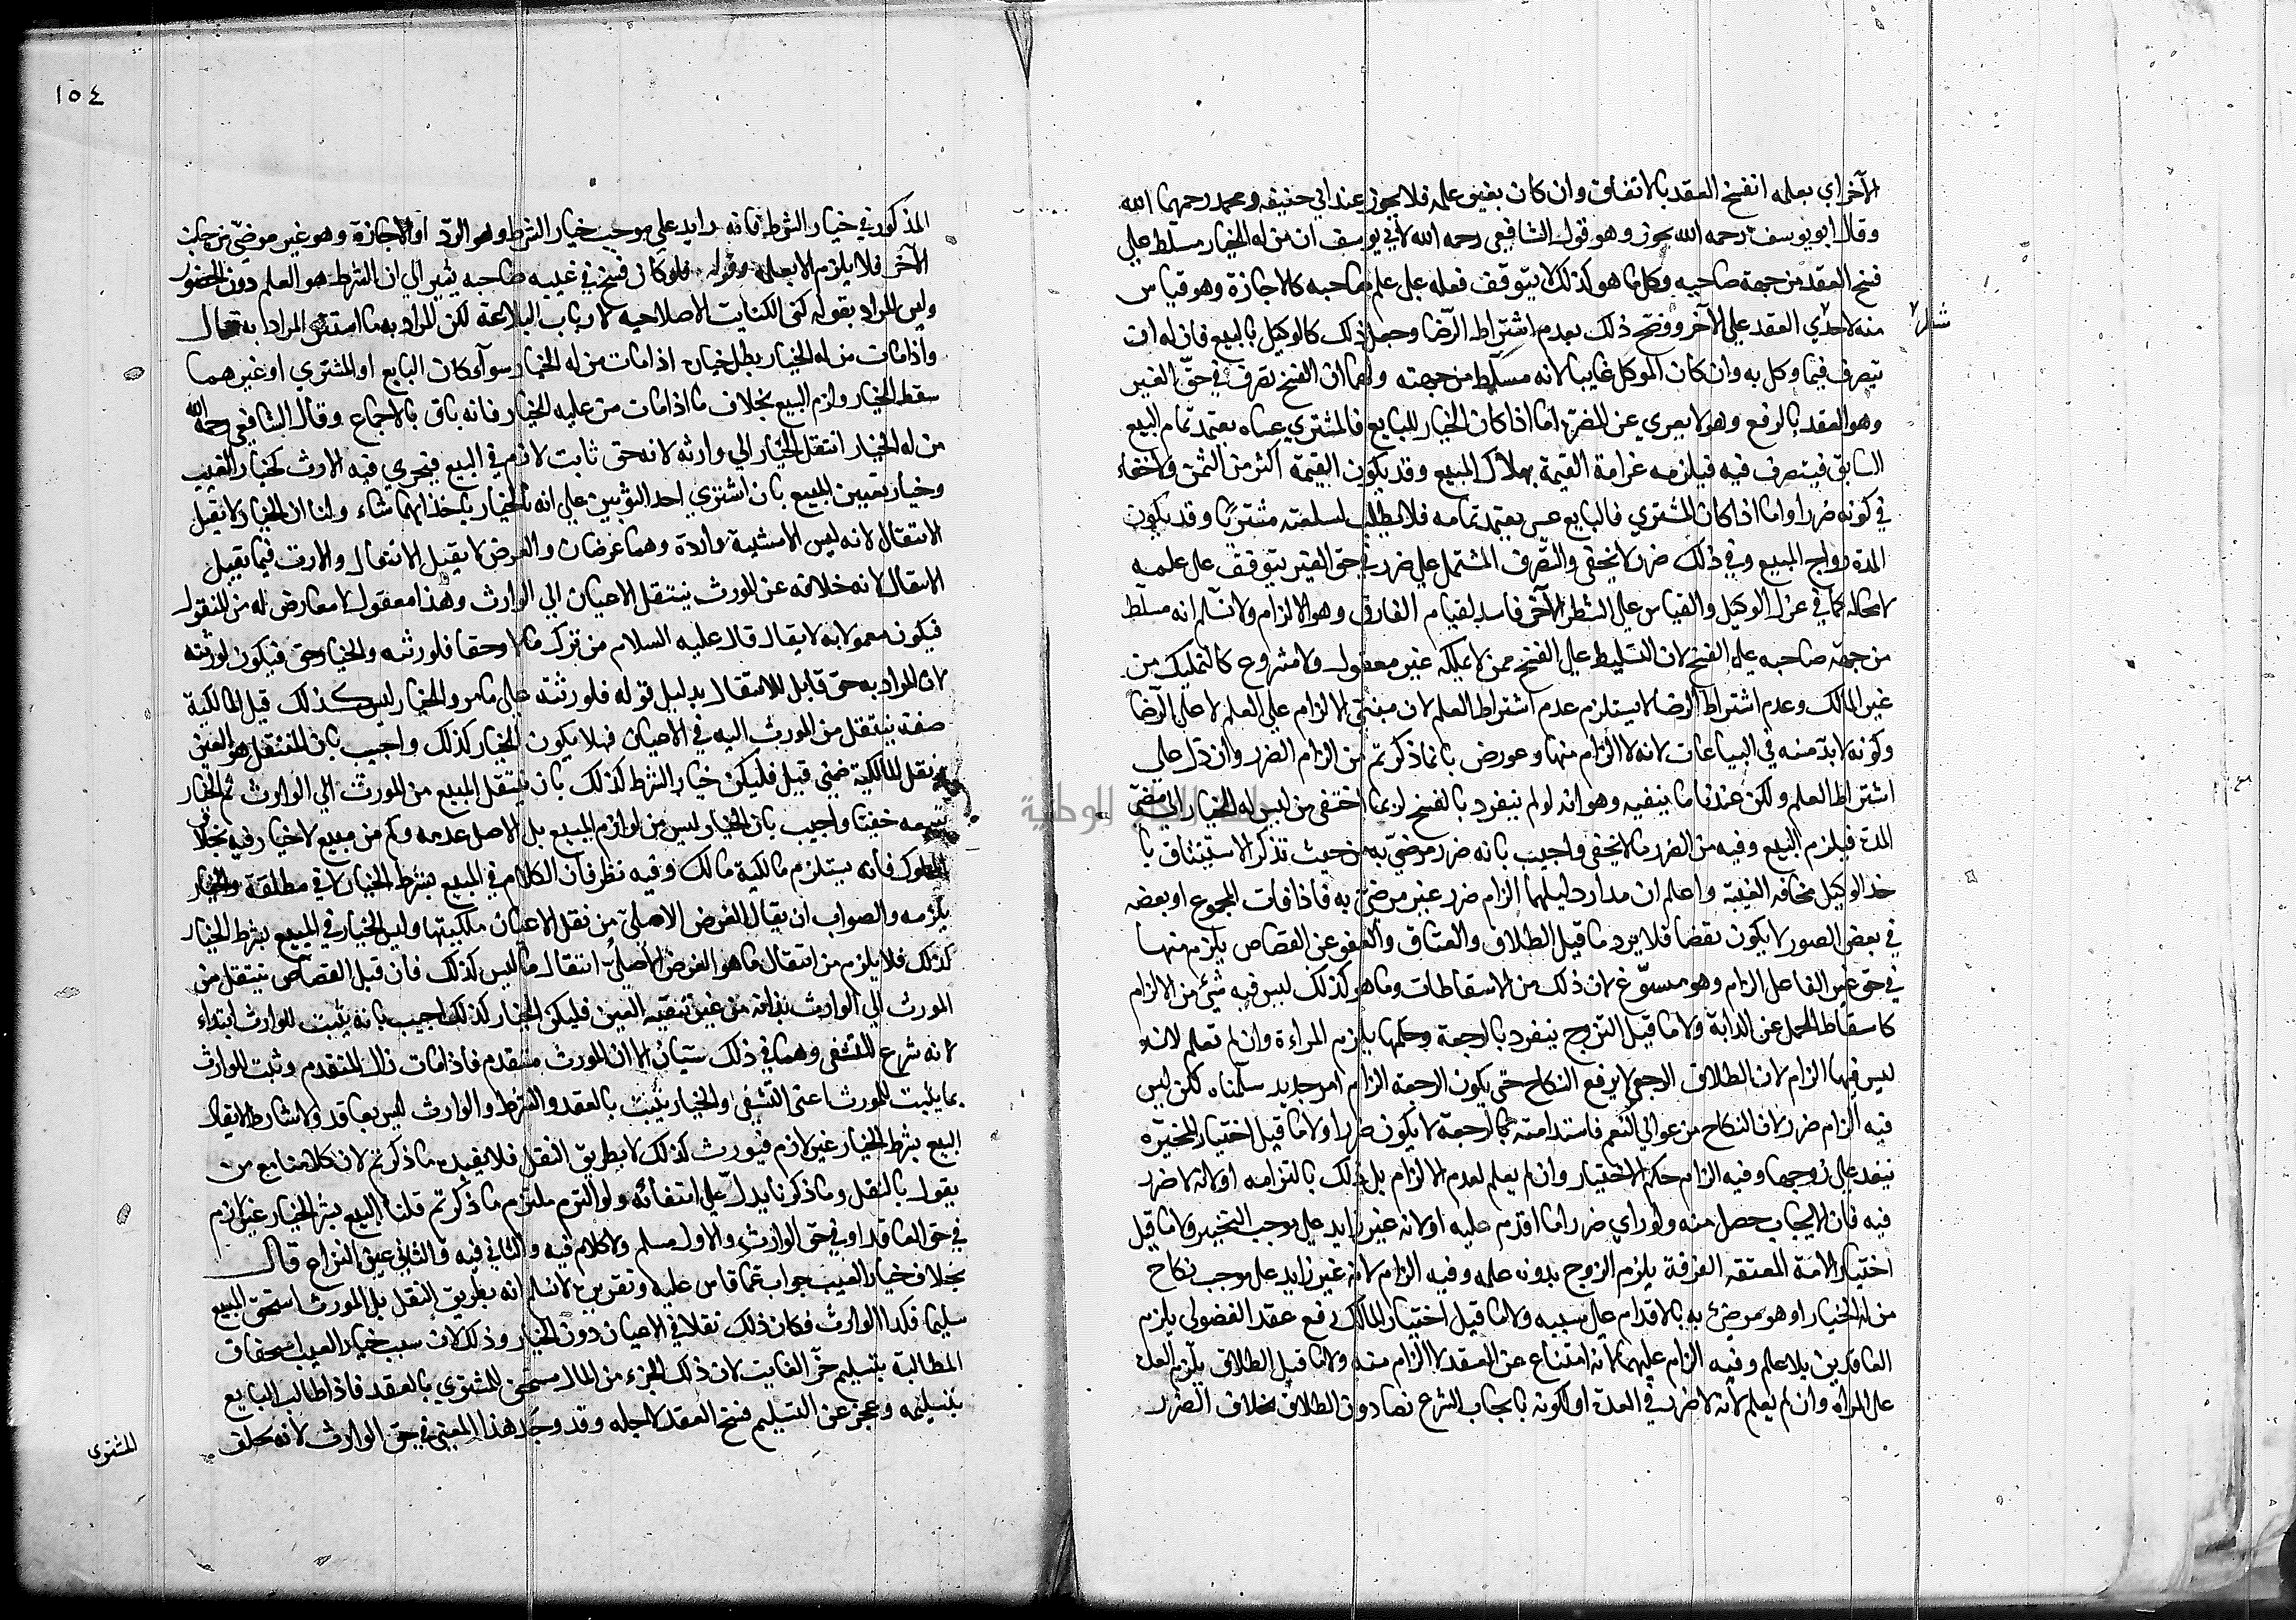 الآخر اي بعلمه انفسخ العقد بالاتفاق وان كان بغير علمه فلا يجوز عند ابي حنيفه ومحمد رحمهما الله
وقال ابو يوسف رحمه الله يجوز وهو قول الشافعي رحمه الله لابي يوسف ان من له الخيار مسلط علي
فسخ العقد من جهة صاحبه وكل ما هو كذلك لا يتوقف فعله علي علم صاحبه كالاجازة وهو قياس
منه لاحدي العقد علي الآخر ووضح ذلك بعدم اشتراط الرضا وجعل ذلك كالوكيل بالبيع فان له ان
يتصرف فيما وكل به وان كان الموكل غايبا لانه مسلط من جهته ولهما ان الفسخ تصرف في حق الغير
وهو العقد بالرفع وهو لا يعري عن المضرة اما اذا كان الخيار للبايع فالمشتري عساه يعتمد تمام البيع
السابق فيتصرف فيه فيلزمه غرامة القيمة بهلاك المبيع وقد يكون القيمة اكثر من الثمن ولا خفاء
في كونه ضررا واما اذا كان المشتري فالبايع عسى يعتمد تمامه فلا يطلب لسلعته مشتريا وقد يكون
المدة رواج المبيع وفي ذلك ضرر لا يخفى والتصرف المشتمل علي ضرر في حق الغير يتوقف علي علمه
لا محالة كما في عزل الوكيل والقياس علي الشطر الآخر فاسد لقيام الفارق وهو الالزام ولا نسلم انه مسلط
من جهة صاحبه علي الفسخ لان التسليط علي الفسخ ممن لا يملكه غير معقول ولا مشروع كالتمليك من
غير المالك وعدم اشتراط الرضا لا يستلزم عدم اشتراط العلم لان مبني الالزام علي العلم لا علي الرضا
وكونه لا بد منه في البياعات لانه لا الزام منها وعورض بانما ذكرتم من الزام الضرر وان دل علي
اشتراط العلم ولكن عندنا ما ينفيه وهو انه لو لم ينفرد بالفسخ لربما اختفى من ليس له الخيار الي مضي
المدة فيلزم البيع وفيه من الضرر ما لا يخفى واجيب بانه ضرر مرضي به من حيث تذكر الاستيثاق با
خذ الوكيل مخافة الغيبة واعلم ان مدار دليلهما الزام ضرر غير مرضي به فاذا فات المجموع او بعضه
في بعض الصور لا يكون نقضا فلا يرد ما قيل الطلاق والعتاق والعفو عن القصاص يلزم منها
في حق غير الفاعل الزام وهو مسوغ لان ذلك من الاسقاطات وما هو كذلك ليس فيه شئ من الالزام
كاسقاط الحمل عن الدابة ولا ما قيل الزوج ينفرد بالرجعة وحكمها يلزم المراءة وان لم تعلم لانه
ليس فيها الزام لان الطلاق الرجعي لا يرفع النكاح حتى يكون الرجعة الزام امر جديد سلمناه لكن ليس
فيه الزام ضرر لان النكاح من عوالي النعم فاستدامته بالرجعة لا يكون ضررا ولا ما قيل اختيار المخيرة
ينفد علي زوجها وفيه الزام حكم الاختيار وان لم يعلم لعدم الالزام بل ذلك بالتزامه اولا لانه لا ضرر
فيه فان الايجاب حصل منه ولو راي ضررا ما اقدم عليه اولانه غير زايد علي موجب التخيير ولا ما قيل
اختيار الامة المعتقه الفرقة يلزم الزوج بدونه علمه وفيه الزام لانه غير زايد علي موجب نكاح
من له الخيار او هو مرضئ به بالاقدام علي سببه ولا ما قيل اختيار المالك رفع عقد الفضولي يلزم
العاقدين بلا علم وفيه الزام عليهما لانه امتناع عن العقد لا الزام منه ولا ما قيل الطلاق يلزم العدة
علي المرأة وان لم يعلم لانه لا ضرر في العدة او لكونه بايجاب الشرع نصا دون الطلاق بخلاف الضرر
١٥٤
المذكور في خيار الشرط فانه زايد علي موجب خيار الشرط وهو الرد او الاجازة وهو غير مرضي من جانب
الآخر فلا يلزم الا بعلمه وقوله فلو كان فسخ في غيبه صاحبه يشير الي ان الشرط هو العلم دون الحضور
وليس المراد بقوله كنى الكنايت الاصلاحيه لارباب البلاغة لكن المراد به ما استتر المراد به قال
واذا مات من له الخيار بطل خياره اذا مات من له الخيار سوآء كان البايع او المشتري او غيرهما
سقط الخيار ولزم البيع بخلاف ما اذا مات من عليه الخيار فانه باق بالاجماع وقال الشافعي رحمه الله
من له الخيار انتقل الخيار الي وارثه لانه حق ثابت لازم في البيع فيجري فيه الارث كخيار العيب
وخيار تعيين المبيع بان اشتري احد الثوبين علي انه بالخيار ياخذ ايهما شاء ولنا ان الخيار لا يقبل
الانتقال لانه ليس الا مشية وارادة وهما عرضان والعرض لا يقبل الانتقال والارث فيما يقبل
الانتقال لانه خلافه عن المورث ينتقل الاعيان الي الوارث وهذا معقول لا معارض له من المنقول
فيكون معمولا به لا يقال قال عليه السلام من ترك مالا او حقا فلورثته والخيار حق فيكون لورثته
لان المراد به حق قابل للانتقال بدليل قوله فلورثته علي ما مر والخيار ليس كذلك قيل المالكية
صفة ينتقل من المورث اليه في الاعيان فهلا يكون الخيار كذلك واجيب بان المنتقل هو العين
ونقل المالكية ضمني قيل فليكن خيار الشرط كذلك بان ينتقل المبيع من المورث الي الوارث ثم الخيار
يتبعه ضمنا واجيب بان الخيار ليس من لوازم المبيع بل الاصل عدمه وكم من مبيع لا خيار فيه بخلاف
المملوك فانه يستلزم مالكية مالك وفيه نظر فان الكلام في المبيع بشرط الخيار لا في مطلقه والخيار
يلزمه والصواب ان يقال الغرض الاصلي من نقل الاعيان ملكيتها وليس الخيار في المبيع بشرط الخيار
كذلك فلا يلزم من انتقال ما هو الغرض الاصلي انتقال ما ليس كذلك فان قيل القصاص ينتقل من
المورث الي الوارث بذاته من غير تبعيه العين فليكن الخيار كذلك اجيب بانه يثبت للوارث ابتداء
لانه شرع للتشفي وهما في ذلك سيان الا ان المورث متقدم فاذا مات زال المتقدم وثبت للوارث
بما يثبت للمورث اعني التشفي والخيار يثبت بالعقد والشرط والوارث ليس بعاقد ولا شارط لا يقال
البيع بشرط الخيار غير لازم فيورث كذلك لا بطريق النقل فلا يفيد ما ذكرتم لان كلامنا مع من
يقول بالنقل وما ذكرنا يدل علي انتفائه ولو التزم ملتزم ما ذكرتم قلنا البيع بشرط الخيار غير لازم
في حق العاقد او في حق الوارث والاول مسلم ولا كلام فيه والثاني فيه والثاني عين النزاع قال
بخلاف خيار العيب جواب عما قاس عليه وتقريره لا نسلم انه بطريق النقل بل المورث استحق المبيع
سليما فكذا الوارث فكان ذلك نقلا في الاعيان دون الخيار وذلك لان سبب خيار العيب استحقاق
المطالبة بتسليم جزء الفايت لان ذلك الجزء من المال مستحق للمشتري بالعقد فاذا طالب البايع
بتسليمه وعجز عن التسليم فسخ العقد لاجله وقد وجد هذا المعنى في حق الوارث لانه خلف
المشتري